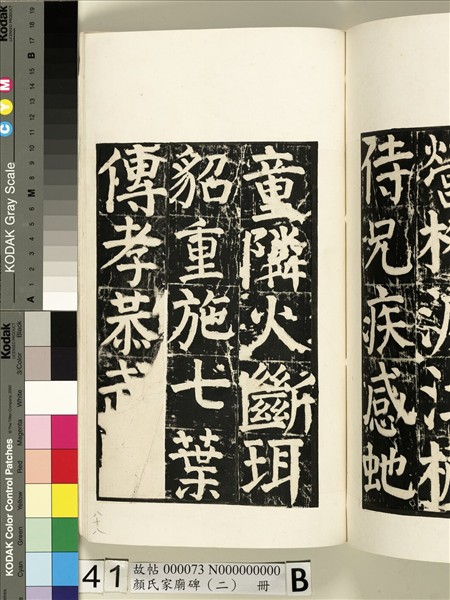 侍兄疾感虵
童隣火斷珥
貂重施七葉
傳孝恭
八十八
41
故帖 000073 N000000000
顏氏家廟碑（二） 冊
B
Kodak
KODAK Gray Scale
C Y M
A 1 2 3 4 5 6 M 8 9 10 11 12 13 14 15 B 17 18 19
Kodak
KODAK Color Control Patches
Blue Cyan Green Yellow Red Magenta White 3/Color Black